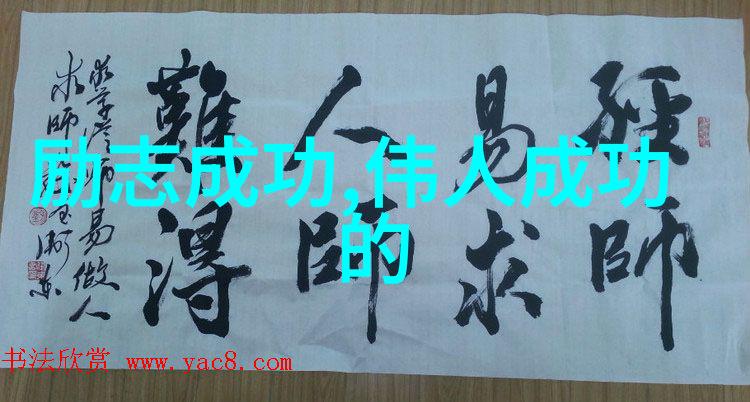 經師
易求
人師
難得
师易做人
求師
励志成功,伟人成功
的
书法欣赏 www.yac8.com